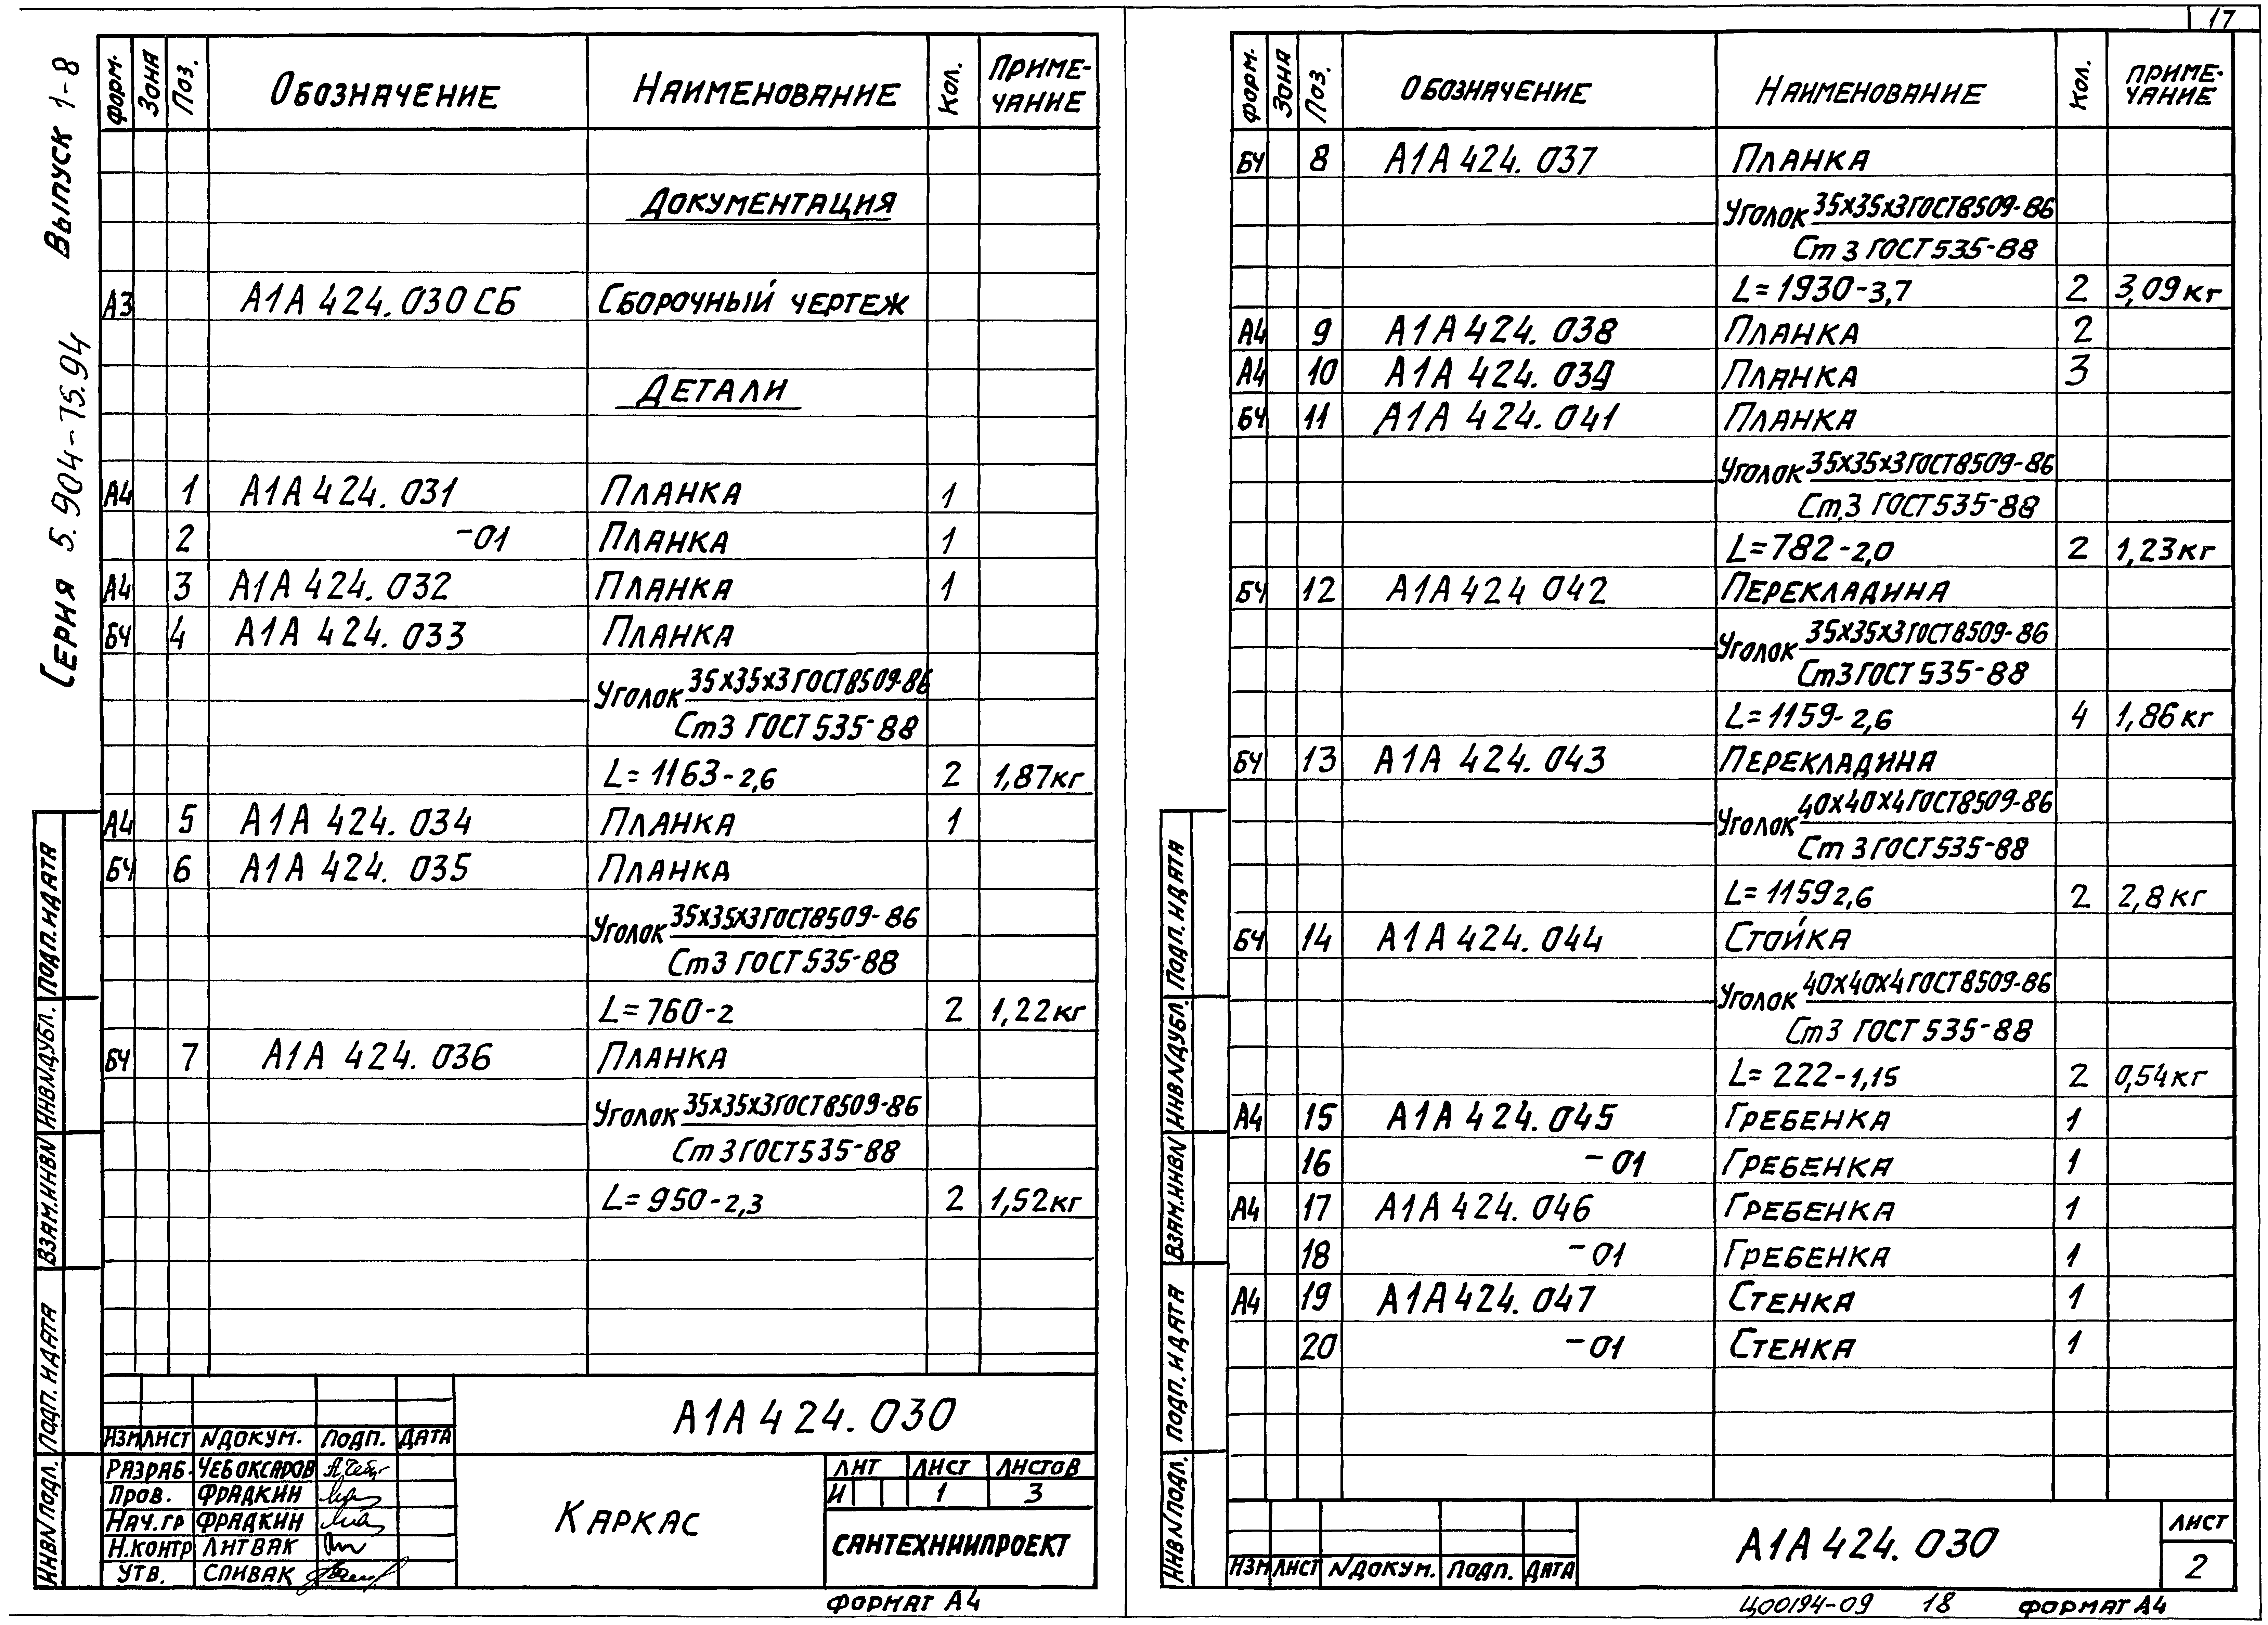 17
Серия 5.904-75.94 Выпуск 1-8
Форм. Зона Поз. Обозначение Наименование Кол. Приме-
чание
Документация
А3 А1А 424.030 СБ Сборочный чертеж
Детали
А4 1 А1А 424.031 Планка 1
2 -01 Планка 1
А4 3 А1А 424.032 Планка 1
БЧ 4 А1А 424.033 Планка
Уголок 35х35х3 ГОСТ 8509-86
Ст3 ГОСТ 535-88
L=1163-2,6 2 1,87кг
А4 5 А1А 424.034 Планка 1
БЧ 6 А1А 424.035 Планка
Уголок 35х35х3 ГОСТ 8509-86
Ст3 ГОСТ 535-88
L=760-2 2 1,22кг
БЧ 7 А1А 424.036 Планка
Уголок 35х35х3 ГОСТ 8509-86
Ст3 ГОСТ 535-88
L=950-2,3 2 1,52кг
Инв№подл. Подп. и дата Взам.инв№ Инв№дубл. Подп. и дата
А1А 424.030
Изм Лист №докум. Подп. Дата
Разраб. Чебоксаров
Пров. Фрадкин
Нач.гр Фрадкин
Н.контр Литвак
Утв. Спивак
Каркас
Лит Лист Листов
И 1 3
САНТЕХНИИПРОЕКТ
Формат А4
Форм. Зона Поз. Обозначение Наименование Кол. Приме-
чание
БЧ 8 А1А 424.037 Планка
Уголок 35х35х3 ГОСТ 8509-86
Ст 3 ГОСТ 535-88
L=1930-3,7 2 3,09кг
А4 9 А1А 424.038 Планка 2
А4 10 А1А 424.039 Планка 3
БЧ 11 А1А 424.041 Планка
Уголок 35х35х3 ГОСТ 8509-86
Ст.3 ГОСТ 535-88
L=782-2,0 2 1,23кг
БЧ 12 А1А 424 042 Перекладина
Уголок 35х35х3 ГОСТ 8509-86
Ст3 ГОСТ 535-88
L=1159-2,6 4 1,86кг
БЧ 13 А1А 424.043 Перекладина
Уголок 40х40х4 ГОСТ 8509-86
Ст 3 ГОСТ 535-88
L=1159 2,6 2 2,8кг
БЧ 14 А1А 424.044 Стойка
Уголок 40х40х4 ГОСТ 8509-86
Ст3 ГОСТ 535-88
L=222-1,15 2 0,54кг
А4 15 А1А 424.045 Гребенка 1
16 -01 Гребенка 1
А4 17 А1А 424.046 Гребенка 1
18 -01 Гребенка 1
А4 19 А1А 424.047 Стенка 1
20 -01 Стенка 1
Инв№подл. Подп. и дата Взам.инв№ Инв№дубл. Подп. и дата
Изм Лист №докум. Подп. Дата
А1А 424.030
Лист
2
Ц00194-09 18 Формат А4